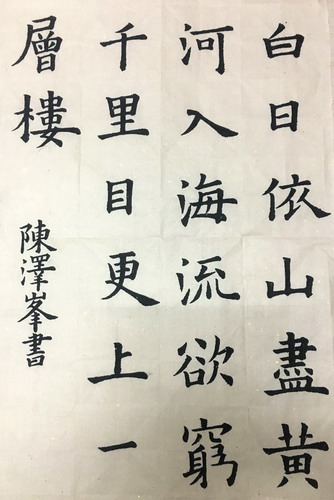 白日依山盡黄
河入海流欲窮
千里目更上一
層樓
陳澤峯書